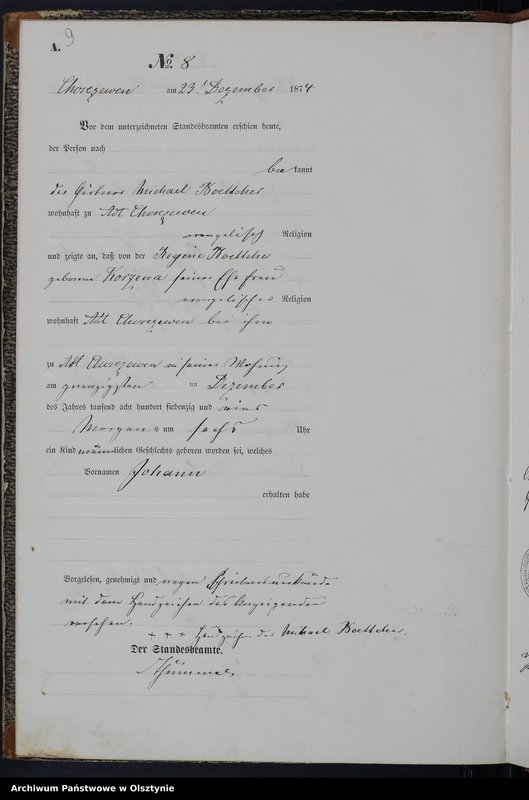 9
A.
No. 8
Chorezewen am 23. Dezember 1874
Vor dem unterzeichneten Standesbeamten erschien heute,
der Person nach
bekannt
der Gärtner Michael Koettcher
wohnhaft zu Adl Chorezewen
evangelisch Religion
und zeigte an, daß von der Regine Koettcher
geborene Korzewa seiner Ehefrau
evangelischer Religion
wohnhaft Adl Chorezewen bei ihm
zu Adl Chorezewen in seiner Wohnung
am zwanzigsten im Dezember
des Jahres tausend acht hundert siebenzig und vier
Morgens um sechs Uhr
ein Kind männlichen Geschlechts geboren worden sei, welches
Vornamen Johann
erhalten habe
Vorgelesen, genehmigt und wegen Schreibensunkunde
mit dem Handzeichen des Anzeigenden
versehen.
+ + + Handzeichen des Michael Koettcher.
Der Standesbeamte.
Archiwum Państwowe w Olsztynie